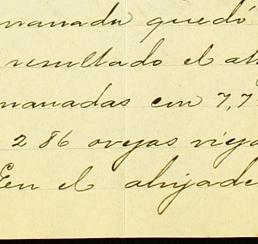 manada quedó
resultado el
manadas con 7,7
286 ovejas viej
En el ahijade